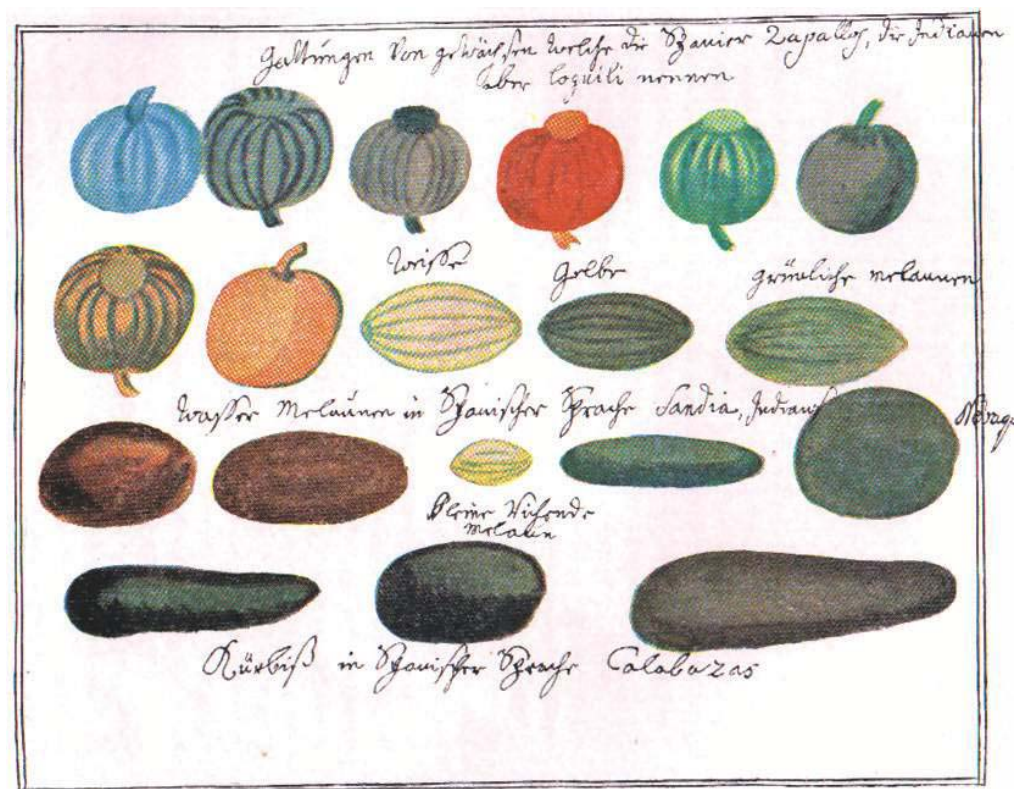 Gattungen Von gewächsen welche die Spanier Zapallos, die Indianer
aber loquili nennen
Weisse
Gelbe
grünliche melaunen
Wasser Melaunen in Spanischer Sprache Sandia, Indianisch
Kleine Richende
Melaun
Kürbiß in Spanischer Sprache Calabazas